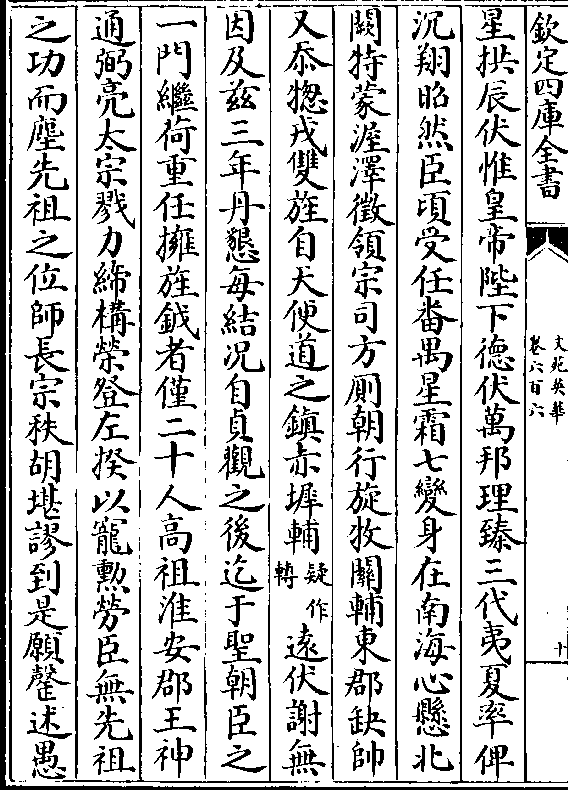 欽定四庫全書
文苑英華
卷六百六
十
星拱辰伏惟皇帝陛下德伏萬邦理臻三代夷夏率俾
沉翔昭然臣頃受任番禺星霜七變身在南海心懸北
闕特蒙渥澤徵領宗司方厠朝行旋牧關輔東郡缺帥
又忝惣戎雙旌自天使道之鎮赤墀輔疑作轉遠伏謝無
因及兹三年丹懇每結况自貞觀之後迄于聖朝臣之
一門繼荷重任擁旌鉞者僅二十人高祖淮安郡王神
通弼亮太宗戮力締構榮登左揆以寵勲勞臣無先祖
之功而塵先祖之位師長宗秩胡堪謬到是願罄述愚